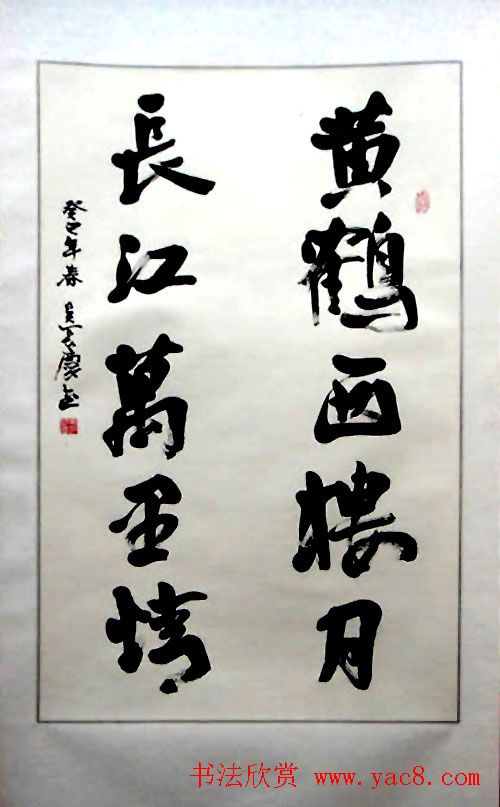 黄鹤西楼月
長江萬里情
癸巳年春
书法欣赏 www.yac8.com